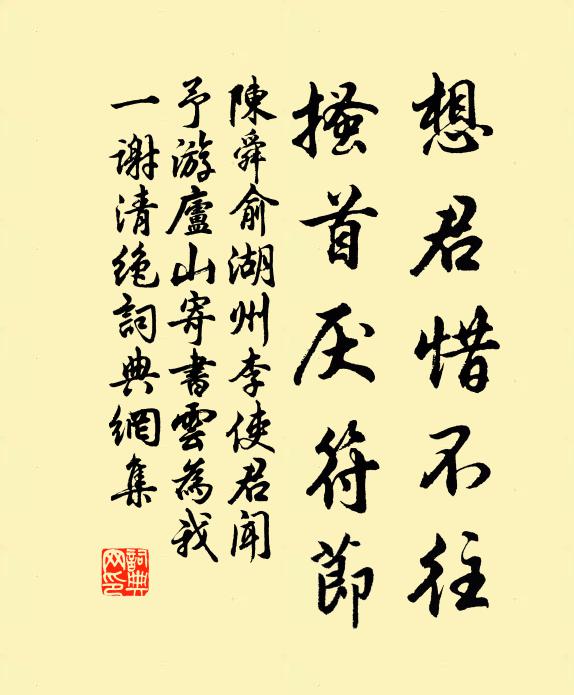 想君惜不往
搔首厌符節
陳舜俞湖州李使君聞
予游廬山寄書雲為我
一謝清絶詞典網集
詞典
网印